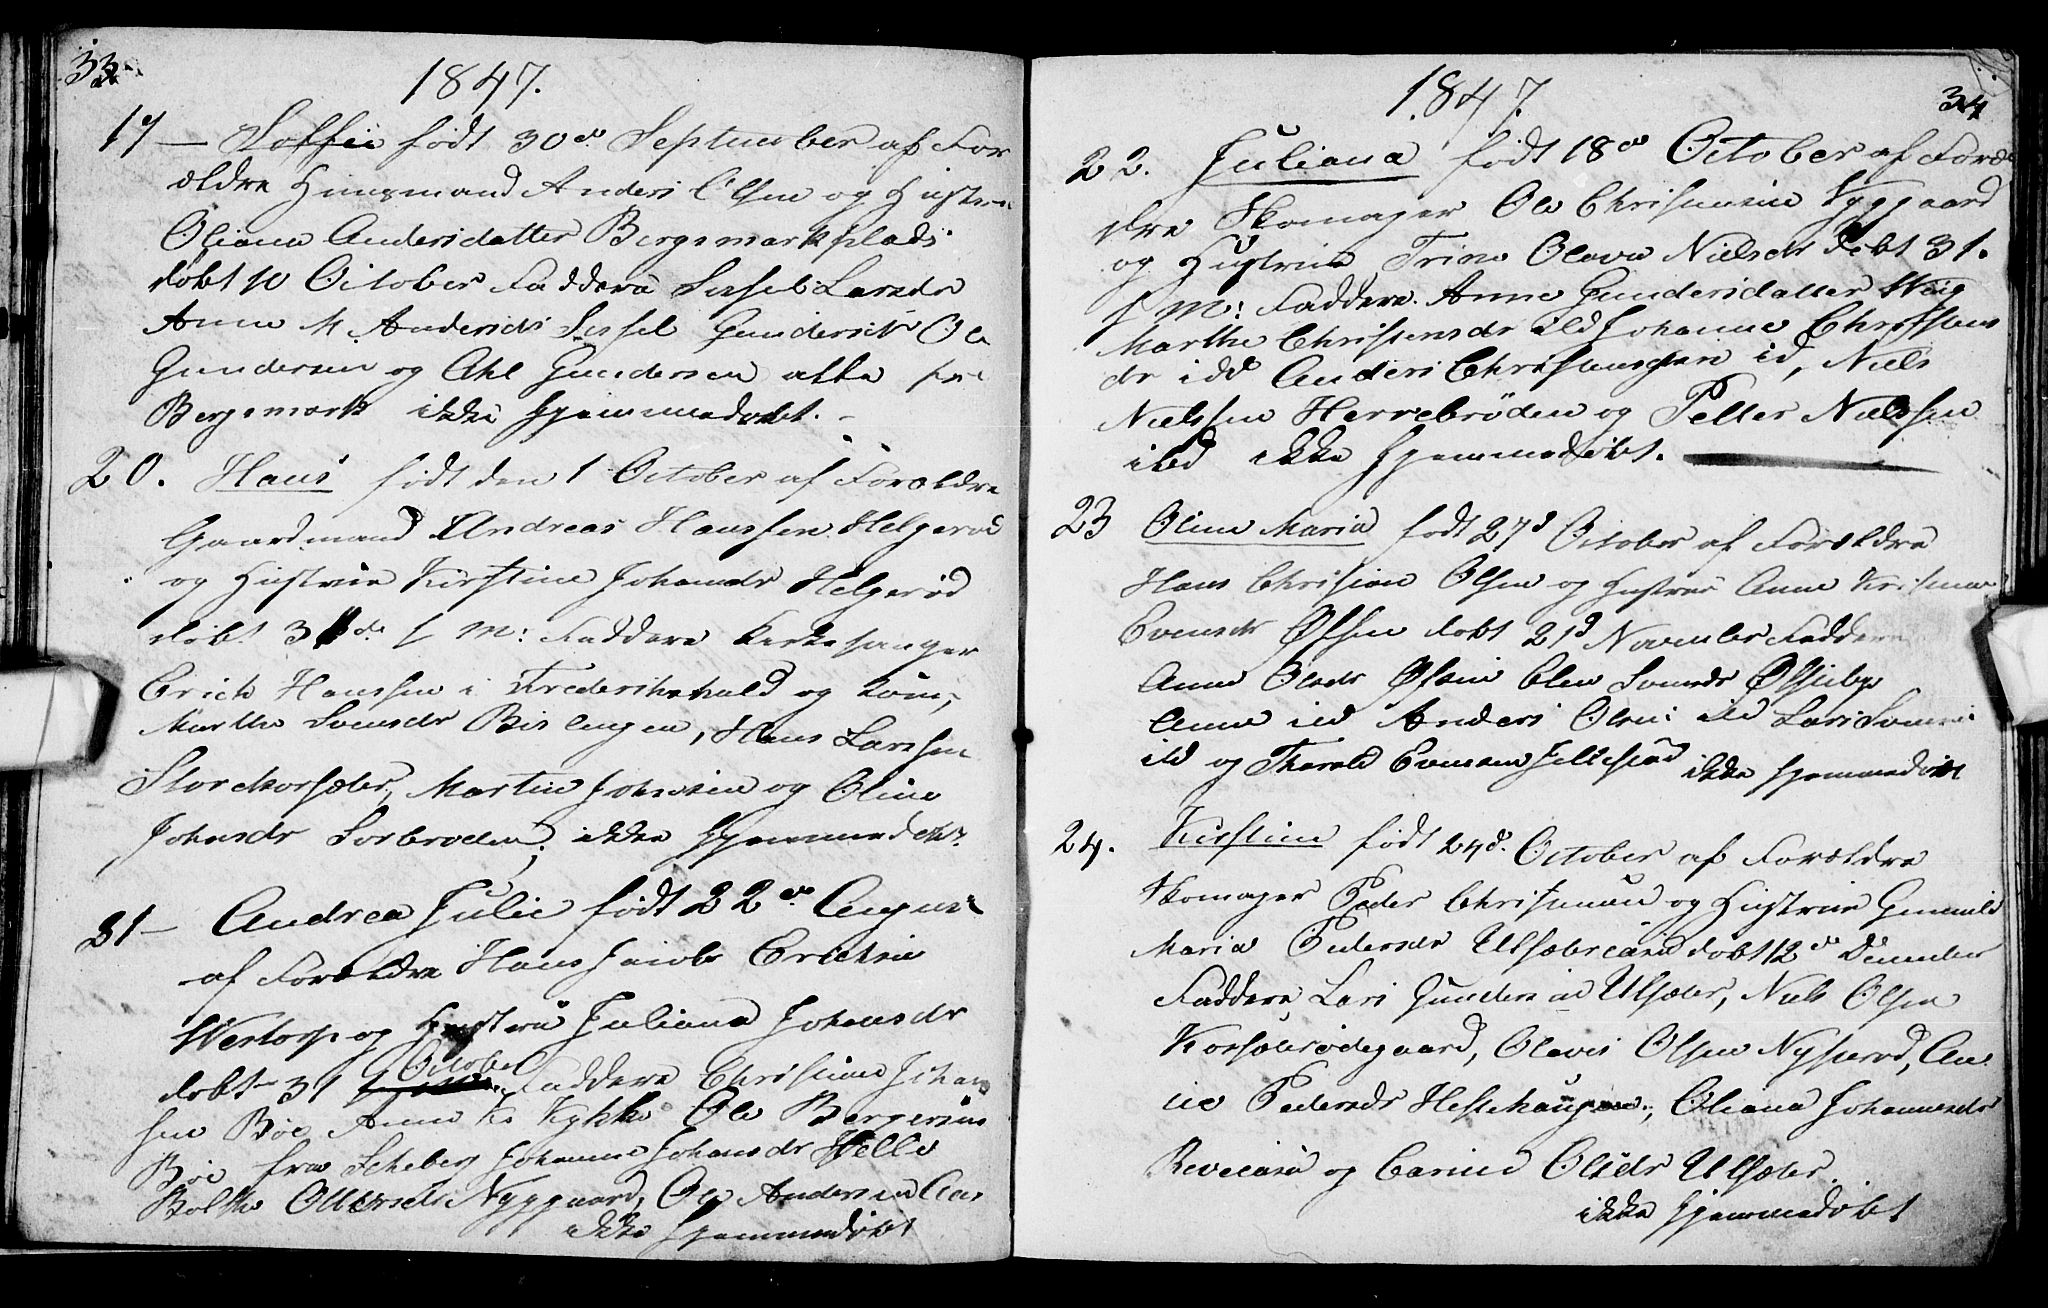 33
1847.
17 — Soffie født 30de September af For
ældre Huusmand Anders Olsen og Hustru
Oliana Andersdatter Bergsmarkplads
døbt 10 October Faddere Sissel Larsdr
Anne M Andersdr Sissel Gundersdr Ole
Gundersen og Gundersen alle fra
Bergsmark ikke hjemmedøbt.
20. Hans født den 1 October af Forældre
Gaardmand Andreas Hanssen Helgerød
og Hustrue Kirstine Johansdr Helgerød
døbt 31de s M: Faddere Kirkesanger
Erich Hanssen i Frederikshald og Kone,
Marthe Svensdr Bislingen, Hans Larssen
Storekorsæter, Martin Johnsen og Oline
Johnsdr Sorbrøden; ikke hjemmedøbt.
21 — Andrea Julie født 22de August
af Forældre Hans Jacob Erichsen
Westorp og Hustrue Juliana Johansdr
October
døbt 31 Faddere Christine Johan
sen Boe Anne Ks Kykke Ole Bergersen
Boe fra Johanne Johansdr Helle
Ollersdr Nyggaard, Ole Andersen
ikke hjemmedøbt
1847.
34
22. Juliana født 18de October af Foræl
dre Skomager Ole Christensen Nyggaard
og Hustrue Trine Olava Nielsdr døbt 31.
s M: Faddere Anne Gundersdatter
Marthe Christensdr ibd Johanne Christens
dr ibd Anders Christensen ibd, Niels
Nielssen Herrebrøden og Petter Nielssen
ibd ikke hjemmedøbt.
23 Oline Maria født 27d October af Forældre
Hans Christian Olsen og Hustrue Anne Kristine
Evensdr Øfsen døbt 21d November Faddere
Anne Olsdr Øfsen Elen Svensdr Øfsebye
Anne ibd Anders Olsen ibd Lars Svensen
ibd og Tharald Evensen Jellestad ikke hjemmedøbt
24. Kirstine født 24d. October af Forældre
Skomager Peder Christensen og Hustrue Gunnild
Maria Pedersdr Ulsætereien døbt 12de December
Faddere, Lars Gundersen Ulsæter, Niels Olsen
Korsæterødegaard, Olaves Olsen Nyserød, An-
ne Pedersdr Hestehaugen; Oliana Johannesdr
Reveeien og Carine Olsdr Ulsæter.
ikke hjemmedøbt